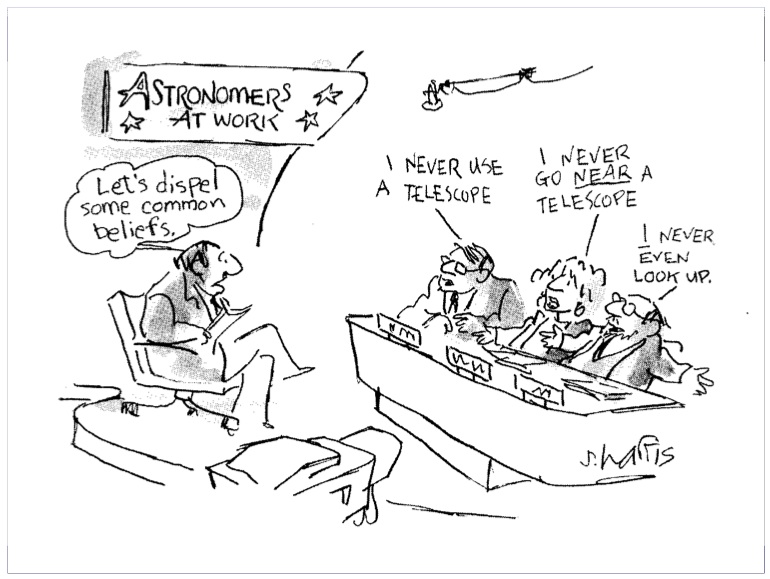 ASTRONOMERS
AT WORK
Let's dispel
some common
beliefs.
I NEVER USE
A TELESCOPE
I NEVER
GO NEAR A
TELESCOPE
I NEVER
EVEN
LOOK UP.
S. Harris